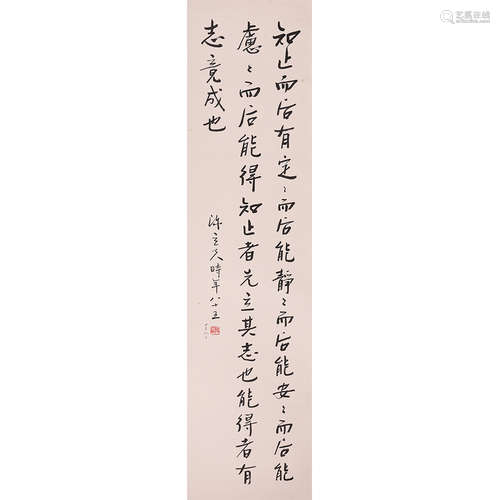 知止而后有定〻而后能靜〻而后能安〻而后能
慮〻而后能得知止者先立其志也能得者有
志竟成也
陳立夫時年八十五